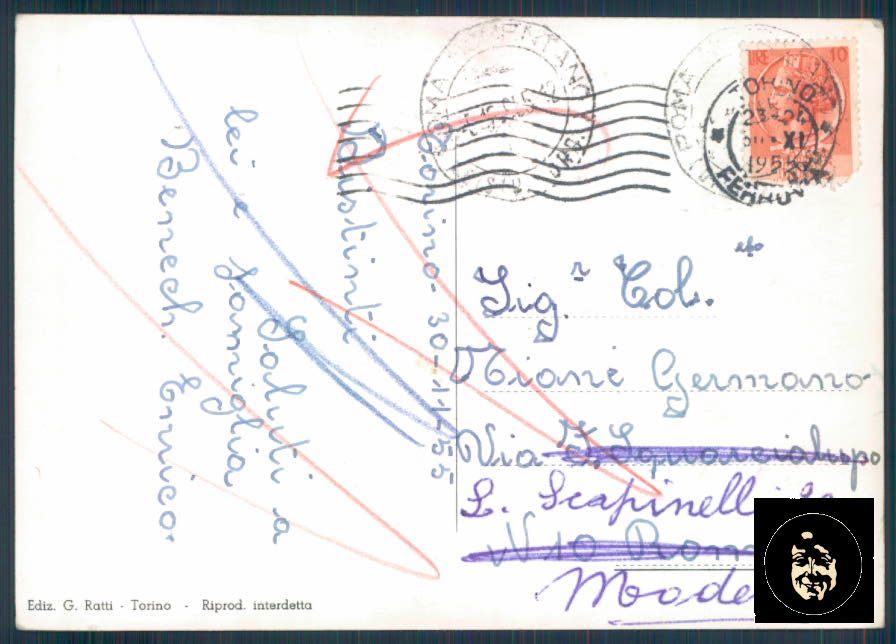 Torino - 30-11-55
Distinti
Saluti a
lei e famiglia
Benech. Enrico.
Sig.r Col.
Miane Germano
Via F. Squarcialupo
L. Scapinelli
N 10 Rom
Mode
ROMA NOMENTANO
ROMA
LIRE 10
TORINO
23-24
XI
1955
FERROVIA
Ediz. G. Ratti - Torino - Riprod. interdetta